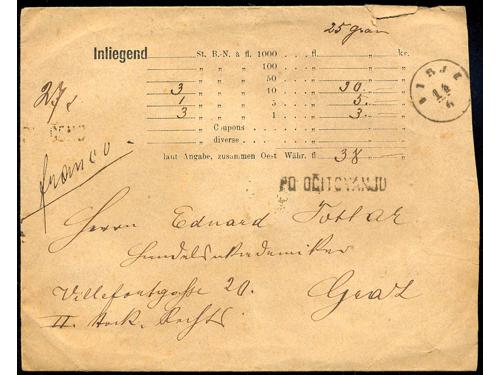 25 gran
Inliegend St. B.-N. à fl. 1000 fl. kr.
„ „ „ 100 „ „
„ „ „ 50 „ „
3 „ „ „ 10 „ 30. „
1 „ „ „ 5 „ 5. „
3 „ „ „ 1 „ 3. „
„ Coupons „ „
„ diverse „ „
laut Angabe, zusammen Oest Währ. fl 38 „
27
franco
PO OČITOVANJU
Herrn Eduard Totlar
Handelsakademiker
Villefortgasse 20.
Graz
II. Stock. Rechts.